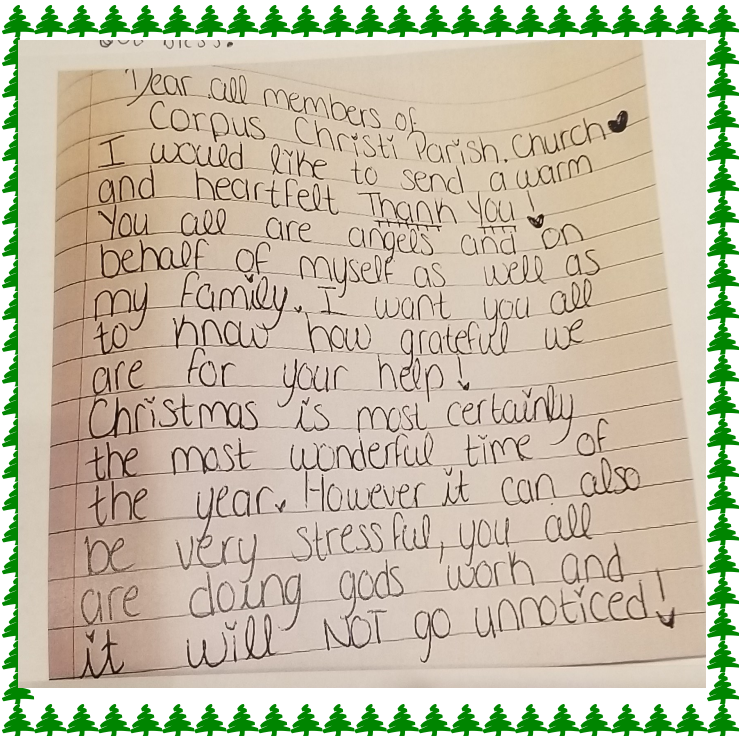 God bless.
Dear all members of
Corpus Christi Parish. Church
I would like to send a warm
and heartfelt Thank You!
You all are angels and on
behalf of myself as well as
my family. I want you all
to know how grateful we
are for your help!
Christmas is most certainly
the most wonderful time of
the year. However it can also
be very stressful, you all
are doing gods work and
it will NOT go unnoticed!